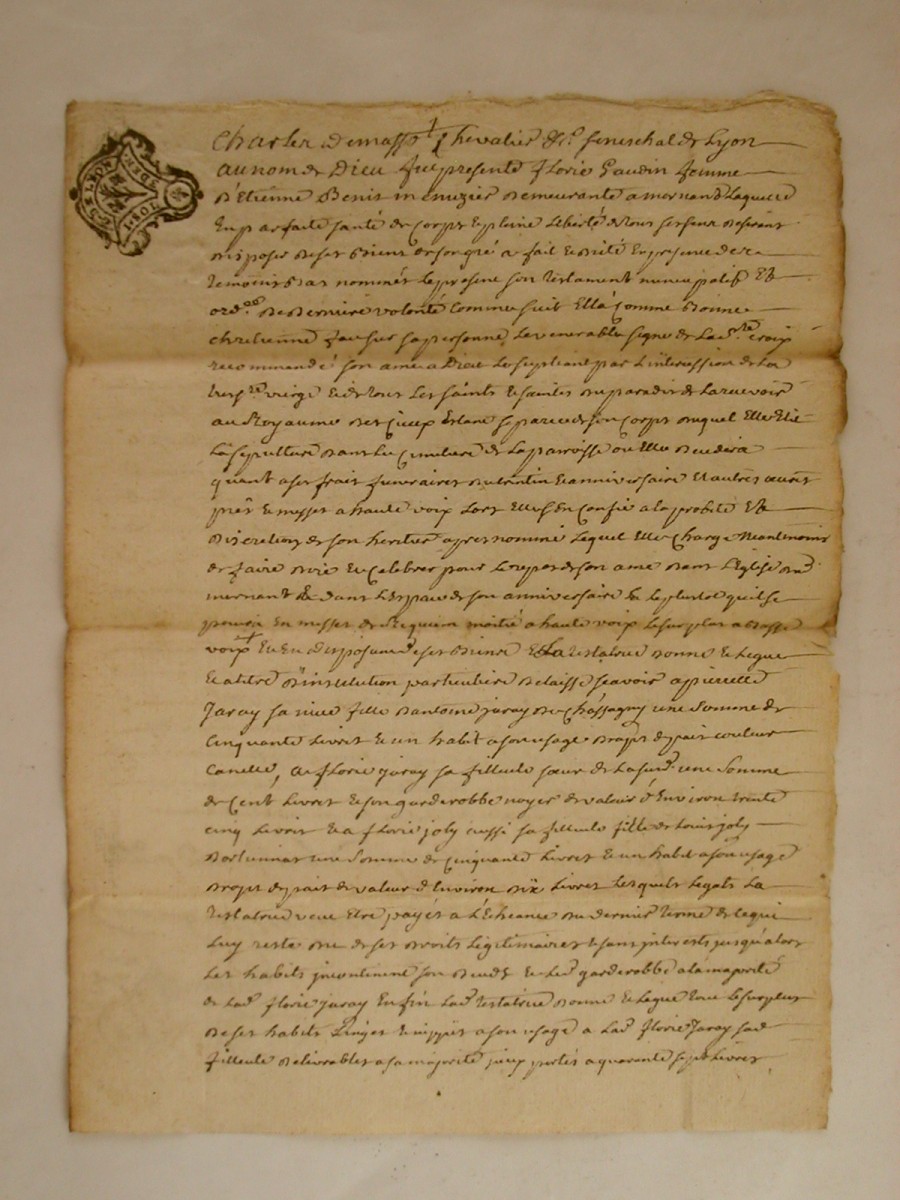 Charles Demasso Chevalier &c. seneschal de Lyon
au nom de Dieu fut presente florie Gaudin femme
D'Etienne Benis menuzier Demeurante a mornant Laquelle
En parfaite santé de Corps Et pleine Liberté de tous ses sens Desirant
Disposer De ses Biens De son gré a fait Et Dicté En presence des
temoins Bas nommés Le present son testament nuncupatif Et
ord.re De Derniere volonté Comme suit Elle Comme Bonne
chretienne fait sur sa personne Le venerable signe de La ste croix
recommandé son ame a Dieu Le supliant par L'intercession de La
tres ste vierge Et de tous Les saints Et saintes Du paradis de La recevoir
au Royaume Des Cieux Estant separée de son Corps Duquel Elle Elit
La sepulture Dans Le Cimetiere de La parroisse ou Elle Decedera
quant a ses frais funeraires Et anniversaire Et autres
Et messes a haute voix Elle s'En Confie a la probité Et
Discretion de son heritier apres nommé Lequel Elle Charge Neantmoins
de faire Dire Et Celebrer pour Le repos de son ame Dans L'Eglise Du d
mornant Et dans L'Espace de son anniversaire Et Le plustot qu'il se
pourra En messes de Requiem moitié a haute voix Le surplus a Basse
voix Et En Disposant de ses Biens La testatrice Donne Et Legue
Et a titre D'institution particuliere Delaisse scavoir a pierrette
Jaray sa niece fille D'antoine jaray De Chassagny une somme de
Cinquante Livres Et un habit a son usage Drap de païs couleur
Canelle, a florie jaray sa filleule sœur de La susd. une somme
de Cent Livres Et son garderobbe noyer de valeur d'Environ trente
cinq Livres Et a florie joly aussi sa filleule fille de Louis joly
une somme de Cinquante Livres Et un habit a son usage
Drap de païs de valeur d'Environ Dix Livres Lesquels Legats La
testatrice veut Etre payés a L'Echeance Du dernier terme de ce qui
Luy reste Du de ses Droits Legitimaires Et sans interests jusqu'alors
Les habits incontinent son Deces Et Le d. garderobbe a la majorité
de Lad. florie jaray Enfin Lad. testatrice Donne Et Legue tout Le surplus
De ses habits Linges Et nippes a son usage a Lad. florie jaray sad.
filleule Delivrables a sa majorité a quarante sept Livres